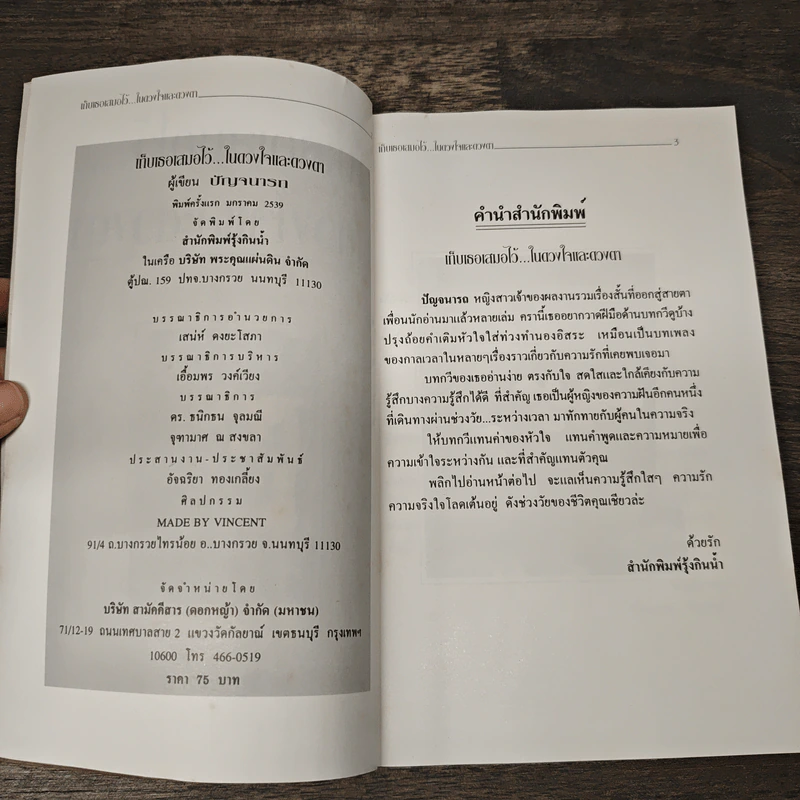 เก็บเธอเสมอไว้...ในดวงใจและดวงตา
เก็บเธอเสมอไว้...ในดวงใจและดวงตา
ผู้เขียน ปัญจนารถ
พิมพ์ครั้งแรก มกราคม 2539
จัดพิมพ์โดย
สำนักพิมพ์รุ้งกินน้ำ
ในเครือ บริษัท พระคุณแผ่นดิน จำกัด
ตู้ปณ. 159 ปทจ.บางกรวย นนทบุรี 11130
บรรณาธิการอำนวยการ
เสน่ห์ คงยะโสภา
บรรณาธิการบริหาร
เอื้อมพร วงค์เวียง
บรรณาธิการ
ดร. ธนิกธน จุลมณี
จุฑามาศ ณ สงขลา
ประสานงาน-ประชาสัมพันธ์
อัจฉริยา ทองเกลี้ยง
ศิลปกรรม
MADE BY VINCENT
91/4 ถ.บางกรวยไทรน้อย อ..บางกรวย จ.นนทบุรี 11130
จัดจำหน่ายโดย
บริษัท สามัคคีสาร (ดอกหญ้า) จำกัด (มหาชน)
71/12-19 ถนนเทศบาลสาย 2 แขวงวัดกัลยาณ์ เขตธนบุรี กรุงเทพฯ
10600 โทร 466-0519
ราคา 75 บาท
เก็บเธอเสมอไว้...ในดวงใจและดวงตา 5
คำนำสำนักพิมพ์
เก็บเธอเสมอไว้...ในดวงใจและดวงตา
ปัญจนารถ หญิงสาวเจ้าของผลงานรวมเรื่องสั้นที่ออกสู่สายตา
เพื่อนนักอ่านมาแล้วหลายเล่ม ครานี้เธออยากวาดฝีมือด้านบทกวีดูบ้าง
ปรุงถ้อยคำเติมหัวใจใส่ท่วงทำนองอิสระ เหมือนเป็นบทเพลง
ของกาลเวลาในหลายๆเรื่องราวเกี่ยวกับความรักที่เคยพบเจอมา
บทกวีของเธออ่านง่าย ตรงกับใจ สดใสและใกล้เคียงกับความ
รู้สึกบางความรู้สึกได้ดี ที่สำคัญ เธอเป็นผู้หญิงของความฝันอีกคนหนึ่ง
ที่เดินทางผ่านช่วงวัย...ระหว่างเวลา มาทักทายกับผู้คนในความจริง
ให้บทกวีแทนค่าของหัวใจ แทนคำพูดและความหมายเพื่อ
ความเข้าใจระหว่างกัน และที่สำคัญแทนตัวคุณ
พลิกไปอ่านหน้าต่อไป จะแลเห็นความรู้สึกใสๆ ความรัก
ความจริงใจโลดเต้นอยู่ ดังช่วงวัยของชีวิตคุณเชียวล่ะ
ด้วยรัก
สำนักพิมพ์รุ้งกินน้ำ